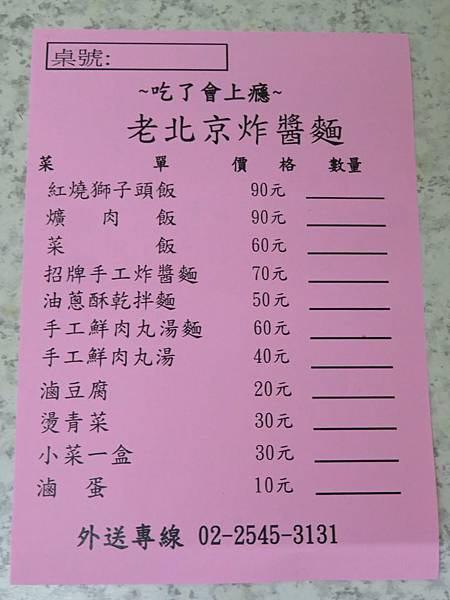 桌號:
~吃了會上癮~
老北京炸醬麵
菜單 價格 數量
紅燒獅子頭飯 90元
爌肉飯 90元
菜飯 60元
招牌手工炸醬麵 70元
油蔥酥乾拌麵 50元
手工鮮肉丸湯麵 60元
手工鮮肉丸湯 40元
滷豆腐 20元
燙青菜 30元
小菜一盒 30元
滷蛋 10元
外送專線 02-2545-3131